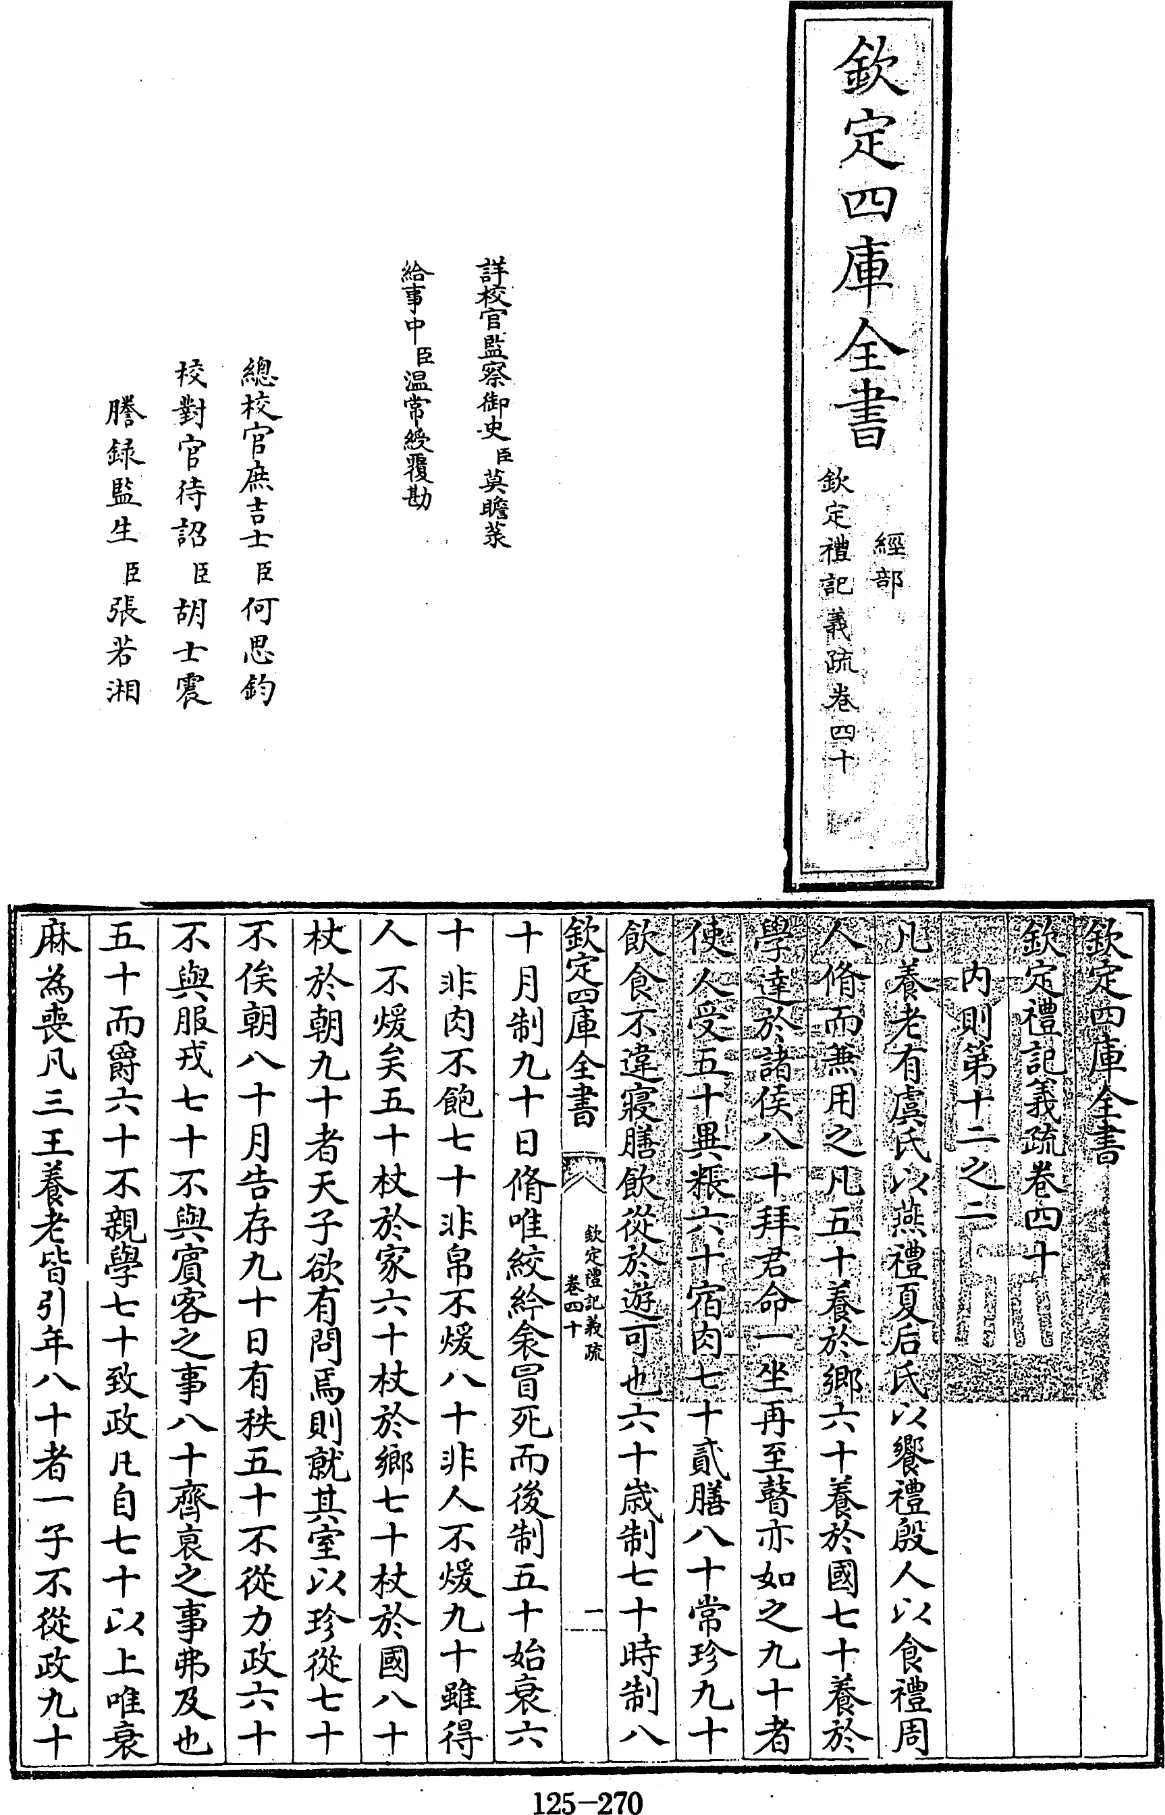 欽定四庫全書
經部
欽定禮記義疏卷四十
詳校官監察御史臣莫瞻菉
給事中臣温常綬覆勘
總校官庶吉士臣何思鈞
校對官待詔臣胡士震
謄録監生臣張若湘
欽定四庫全書
欽定禮記義疏卷四十
内則第十二之二
凡養老有虞氏以燕禮夏后氏以饗禮殷人以食禮周
人脩而兼用之凡五十養於鄉六十養於國七十養於
學達於諸侯八十拜君命一坐再至瞽亦如之九十者
使人受五十異粻六十宿肉七十貳膳八十常珍九十
飲食不違寢膳飲從於遊可也六十歳制七十時制八
欽定四庫全書
欽定禮記義疏
卷四十
一
十月制九十日脩唯絞紟衾冒死而後制五十始衰六
十非肉不飽七十非帛不煖八十非人不煖九十雖得
人不煖矣五十杖於家六十杖於鄉七十杖於國八十
杖於朝九十者天子欲有問焉則就其室以珍從七十
不俟朝八十月告存九十日有秩五十不從力政六十
不與服戎七十不與賓客之事八十齊衰之事弗及也
五十而爵六十不親學七十致政凡自七十以上唯衰
麻為喪凡三王養老皆引年八十者一子不從政九十
125-270